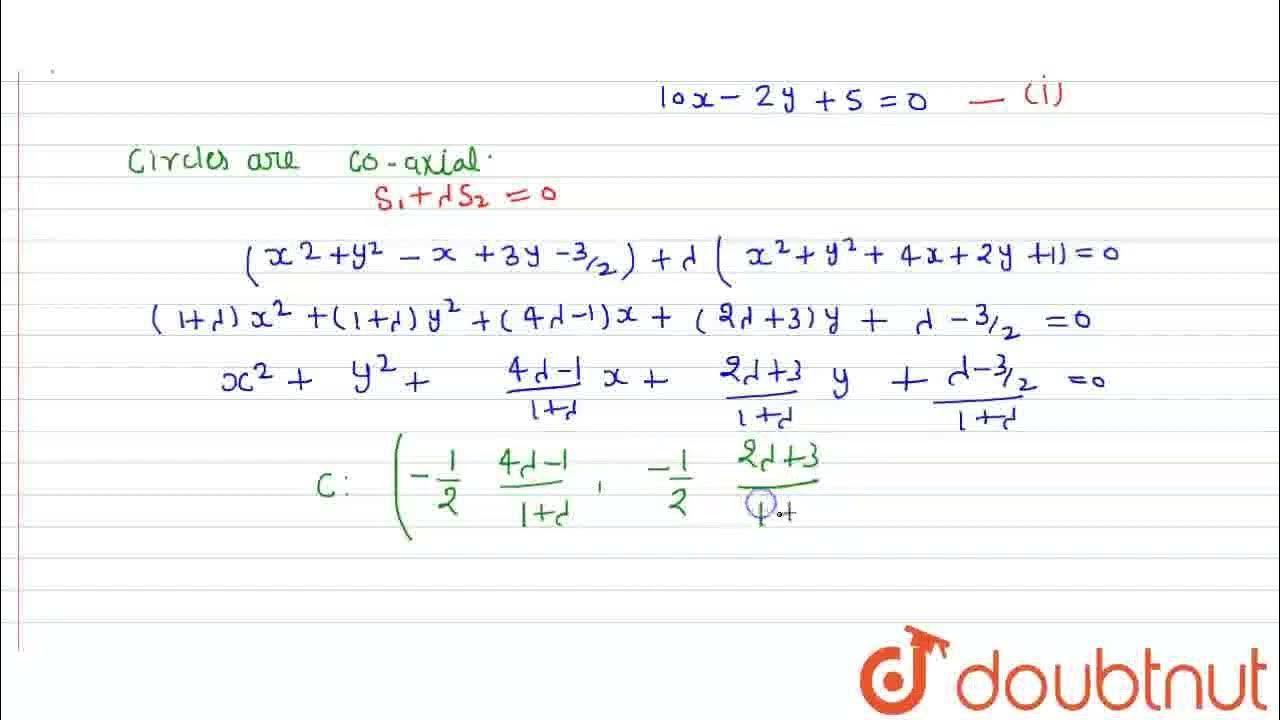 10x - 2y + 5 = 0 — (i)
Circles are co-axial.
S₁ + λS₂ = 0
(x² + y² - x + 3y - 3/2) + λ(x² + y² + 4x + 2y + 1) = 0
(1+λ)x² + (1+λ)y² + (4λ-1)x + (2λ+3)y + λ - 3/2 = 0
x² + y² + (4λ-1)/(1+λ) x + (2λ+3)/(1+λ) y + (λ-3/2)/(1+λ) = 0
C: ( -1/2 (4λ-1)/(1+λ) , -1/2 (2λ+3)/(1+
doubtnut